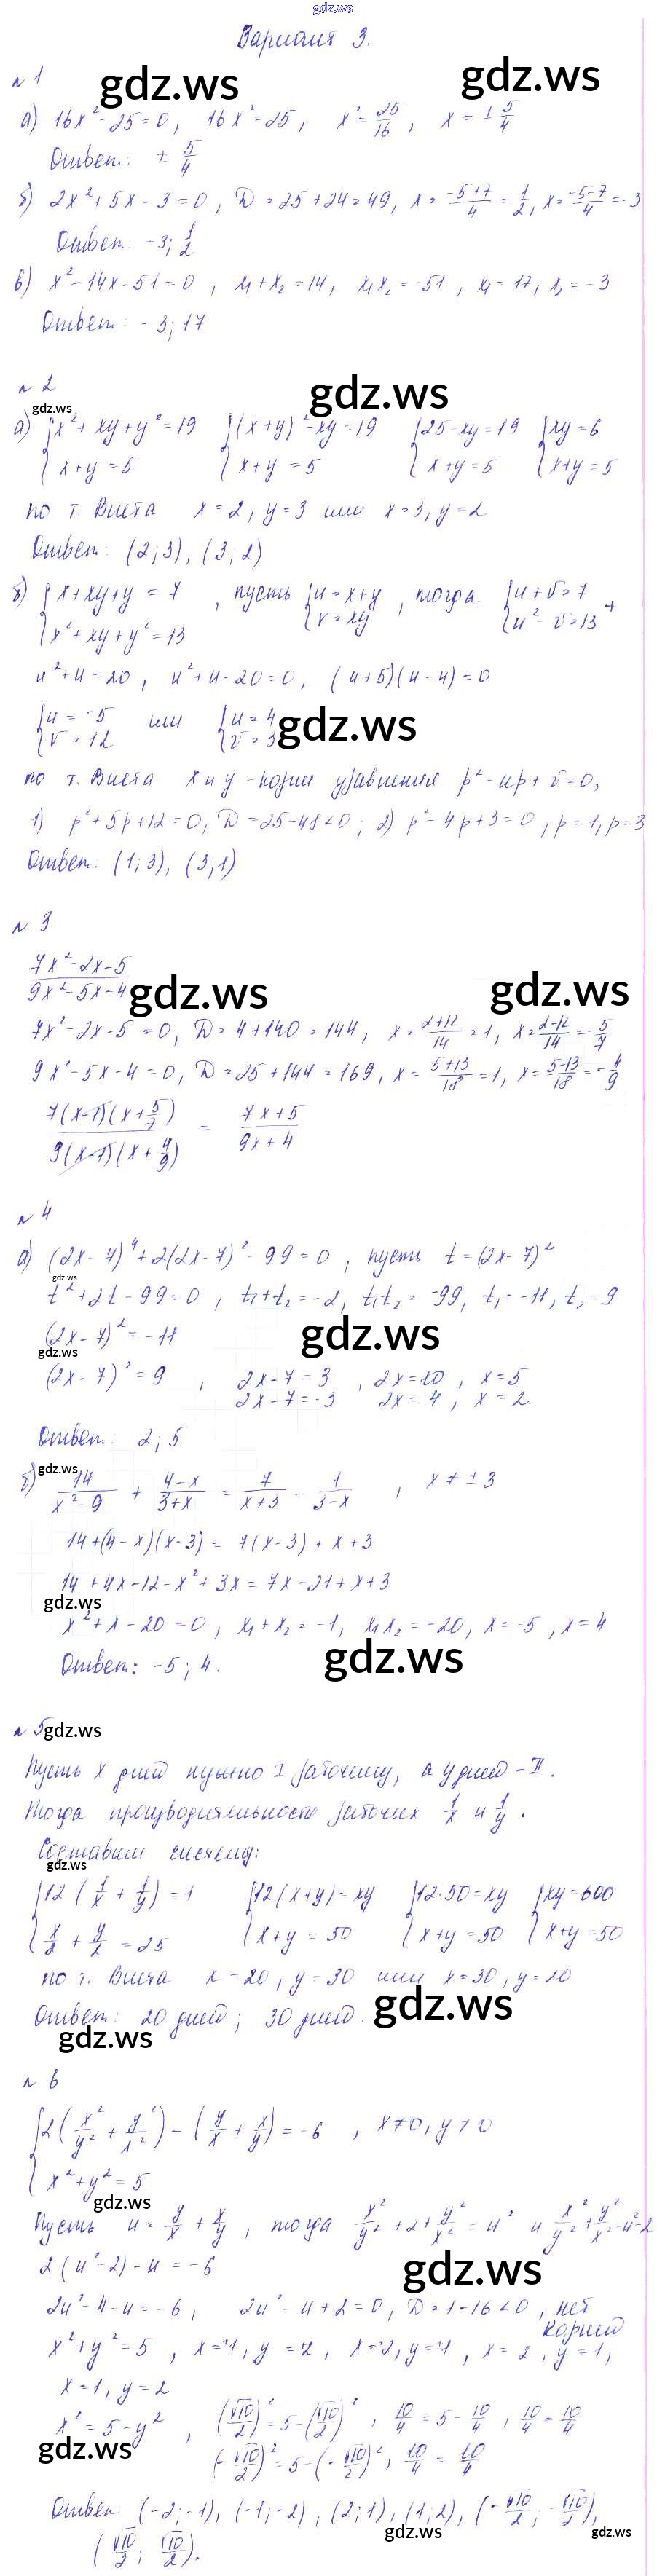 gdz.ws
Вариант 3.
№1
gdz.ws
gdz.ws
а) 16x² - 25 = 0, 16x² = 25, x² = 25/16, x = ± 5/4
Ответ: ± 5/4
б) 2x² + 5x - 3 = 0, D = 25 + 24 = 49, x = (-5+7)/4 = 1/2, x = (-5-7)/4 = -3
Ответ: -3; 1/2
в) x² - 14x - 51 = 0, x₁ + x₂ = 14, x₁x₂ = -51, x₁ = 17, x₂ = -3
Ответ: -3; 17
№2
gdz.ws
gdz.ws
а) { x² + xy + y² = 19 { (x+y)² - xy = 19 { 25 - xy = 19 { xy = 6
x + y = 5 x + y = 5 x + y = 5 x + y = 5
по т. Виета x = 2, y = 3 или x = 3, y = 2
Ответ: (2; 3), (3, 2)
б) { x + xy + y = 7, пусть { u = x + y, тогда { u + v = 7
x² + xy + y² = 13 v = xy u² - v = 13 +
u² + u = 20, u² + u - 20 = 0, (u+5)(u-4) = 0
{ u = -5 или { u = 4
v = 12 v = 3
gdz.ws
по т. Виета x и y - корни уравнения p² - up + v = 0,
1) p² + 5p + 12 = 0, D = 25 - 48 < 0; 2) p² - 4p + 3 = 0, p = 1, p = 3
Ответ: (1; 3), (3; 1)
№3
(7x² - 2x - 5)/(9x² - 5x - 4)
gdz.ws
gdz.ws
7x² - 2x - 5 = 0, D = 4 + 140 = 144, x = (2+12)/14 = 1, x = (2-12)/14 = -5/7
9x² - 5x - 4 = 0, D = 25 + 144 = 169, x = (5+13)/18 = 1, x = (5-13)/18 = -4/9
7(x-1)(x+5/7) / 9(x-1)(x+4/9) = (7x+5)/(9x+4)
№4
а) (2x-7)⁴ + 2(2x-7)² - 99 = 0, пусть t = (2x-7)²
gdz.ws
t² + 2t - 99 = 0, t₁ + t₂ = -2, t₁t₂ = -99, t₁ = -11, t₂ = 9
(2x-7)² = -11
gdz.ws
gdz.ws
(2x-7)² = 9, 2x - 7 = 3, 2x = 10, x = 5
2x - 7 = -3 2x = 4, x = 2
Ответ: 2; 5
gdz.ws
б) 14/(x²-9) + (4-x)/(3+x) = 7/(x+3) - 1/(3-x), x ≠ ± 3
14 + (4-x)(x-3) = 7(x-3) + x + 3
14 + 4x - 12 - x² + 3x = 7x - 21 + x + 3
gdz.ws
x² + x - 20 = 0, x₁ + x₂ = -1, x₁x₂ = -20, x = -5, x = 4
Ответ: -5; 4.
gdz.ws
№5
gdz.ws
Пусть x дней нужно I рабочему, а y дней - II.
Тогда производительность рабочих 1/x и 1/y.
Составим систему:
gdz.ws
{ 12(1/x + 1/y) = 1 { 12(x+y) = xy { 12·50 = xy { xy = 600
x/2 + y/2 = 25 x + y = 50 x + y = 50 x + y = 50
по т. Виета x = 20, y = 30 или x = 30, y = 20
Ответ: 20 дней; 30 дней.
gdz.ws
gdz.ws
№6
{ 2(x²/y² + y²/x²) - (y/x + x/y) = -6, x ≠ 0, y ≠ 0
x² + y² = 5
gdz.ws
Пусть u = y/x + x/y, тогда x²/y² + 2 + y²/x² = u² и x²/y² + y²/x² = u² - 2
2(u² - 2) - u = -6
gdz.ws
2u² - 4 - u = -6, 2u² - u + 2 = 0, D = 1 - 16 < 0, нет
корней
x² + y² = 5, x = -1, y = -2, x = -2, y = -1, x = 2, y = 1,
x = 1, y = 2
x² = 5 - y², (√10/2)² = 5 - (√10/2)², 10/4 = 5 - 10/4, 10/4 = 10/4
gdz.ws
(-√10/2)² = 5 - (-√10/2)², 10/4 = 10/4
Ответ: (-2; -1), (-1; -2), (2; 1), (1; 2), (-√10/2; -√10/2),
gdz.ws
gdz.ws
(√10/2; √10/2).